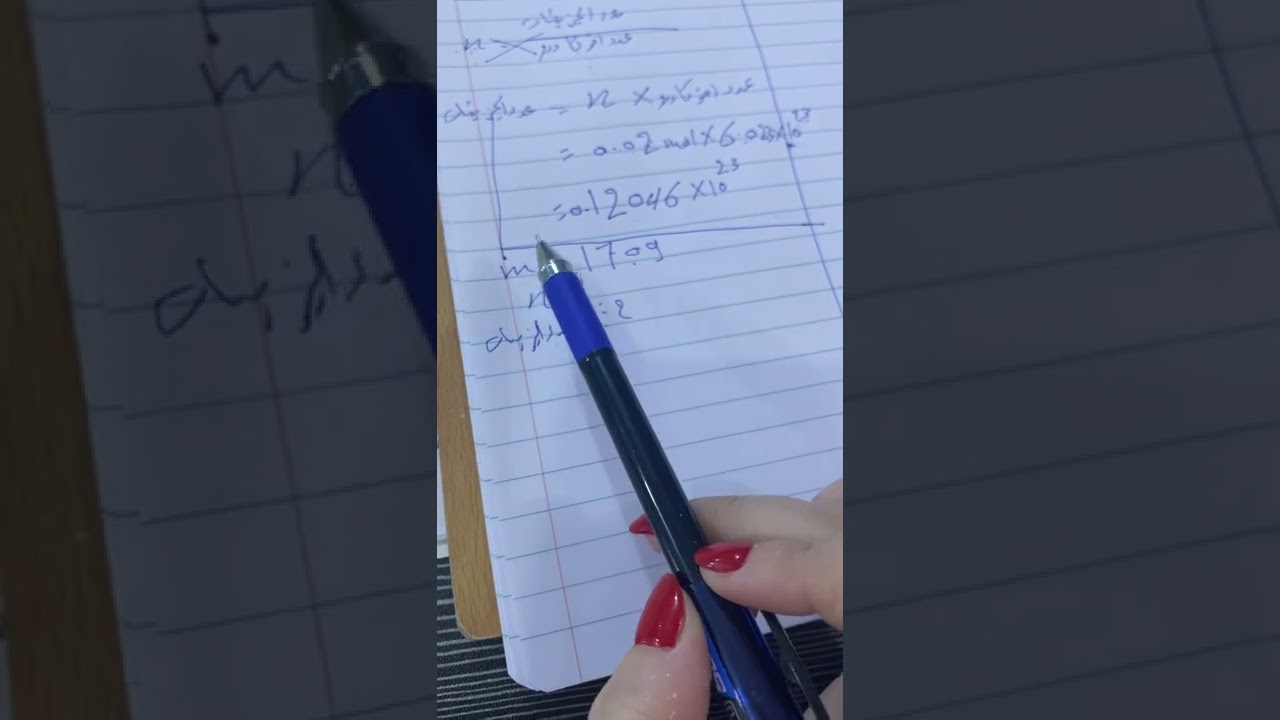 عدد الجزيئات
n = عدد افوكادرو
عدد الجزيئات = n × عدد افوكادرو
= 0.02 mol × 6.023×10²³
= 0.12046 × 10²³
m 170g
n
عدد الجزيئات = ?